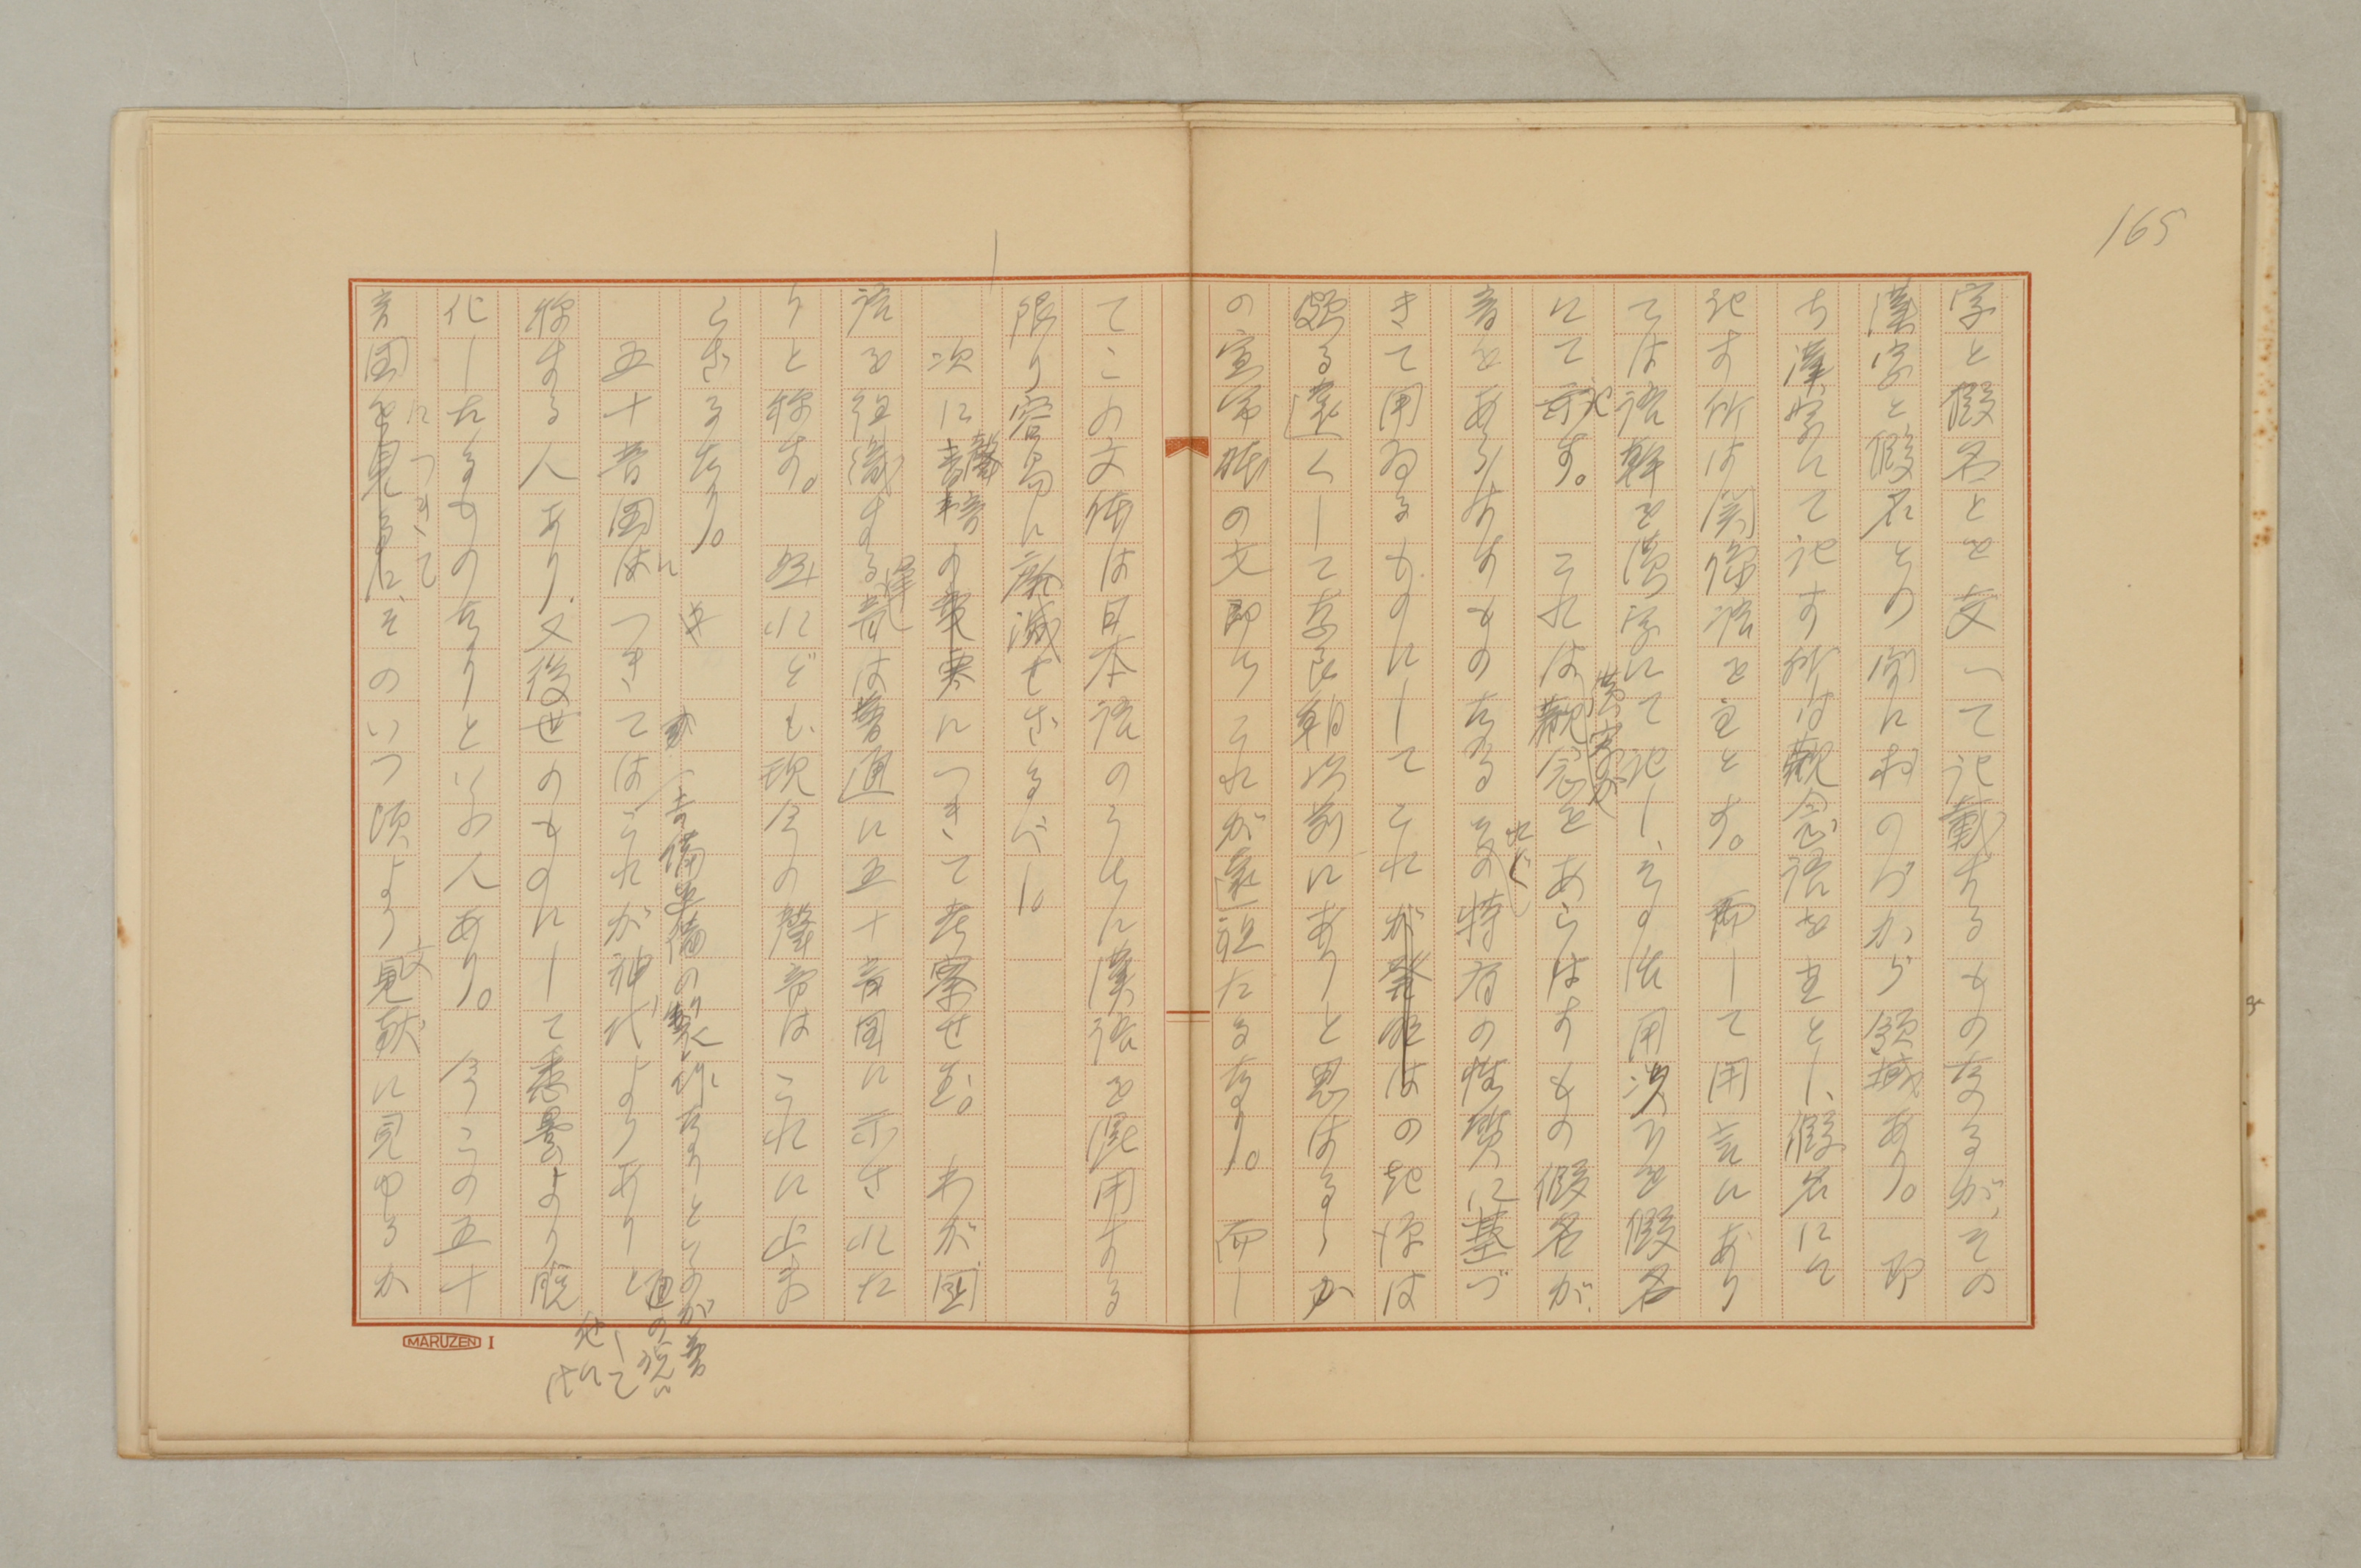 165
字と假名とを交へて記載するもの なるが、その
漢字と假名との間におのづから領域あり。即
ち漢字にて記す所は觀念語を主とし、假名にて
記す所は関係語を主とす。而して用言にあり
ては語幹を漢字にて記し、その活用、次びを假名
にて記す。これは漢字が觀念をあらはすもの假名が
音をあらはすものなる それぞれ特有の性質に基づ
きて用ゐるものにしてこれが發明はの起源は
頗る遠くして奈良朝以前にありと思はるゝか
の宣命体の文即ちこれが遠祖たるなり。而し
てこの文体は日本語のうちに漢語を混用する
限り容易に廃滅せざるべし。
次に聲音の變遷につきて考察せむ。わが國
語を組織する聲音は普通に五十音図に示された
りと称す。然れども現今の聲音はこれに止ま
らざるなり。
五十音図につきてはこれが神代よりありと
吉備真備の製作なりといふのが普通の説にして
称する人あり、又後世のものにして悉曇より脱
化したるものなりといふ人あり。今この五十
音図につきてそのいつ頃より文献に見ゆるか
MARUZEN I